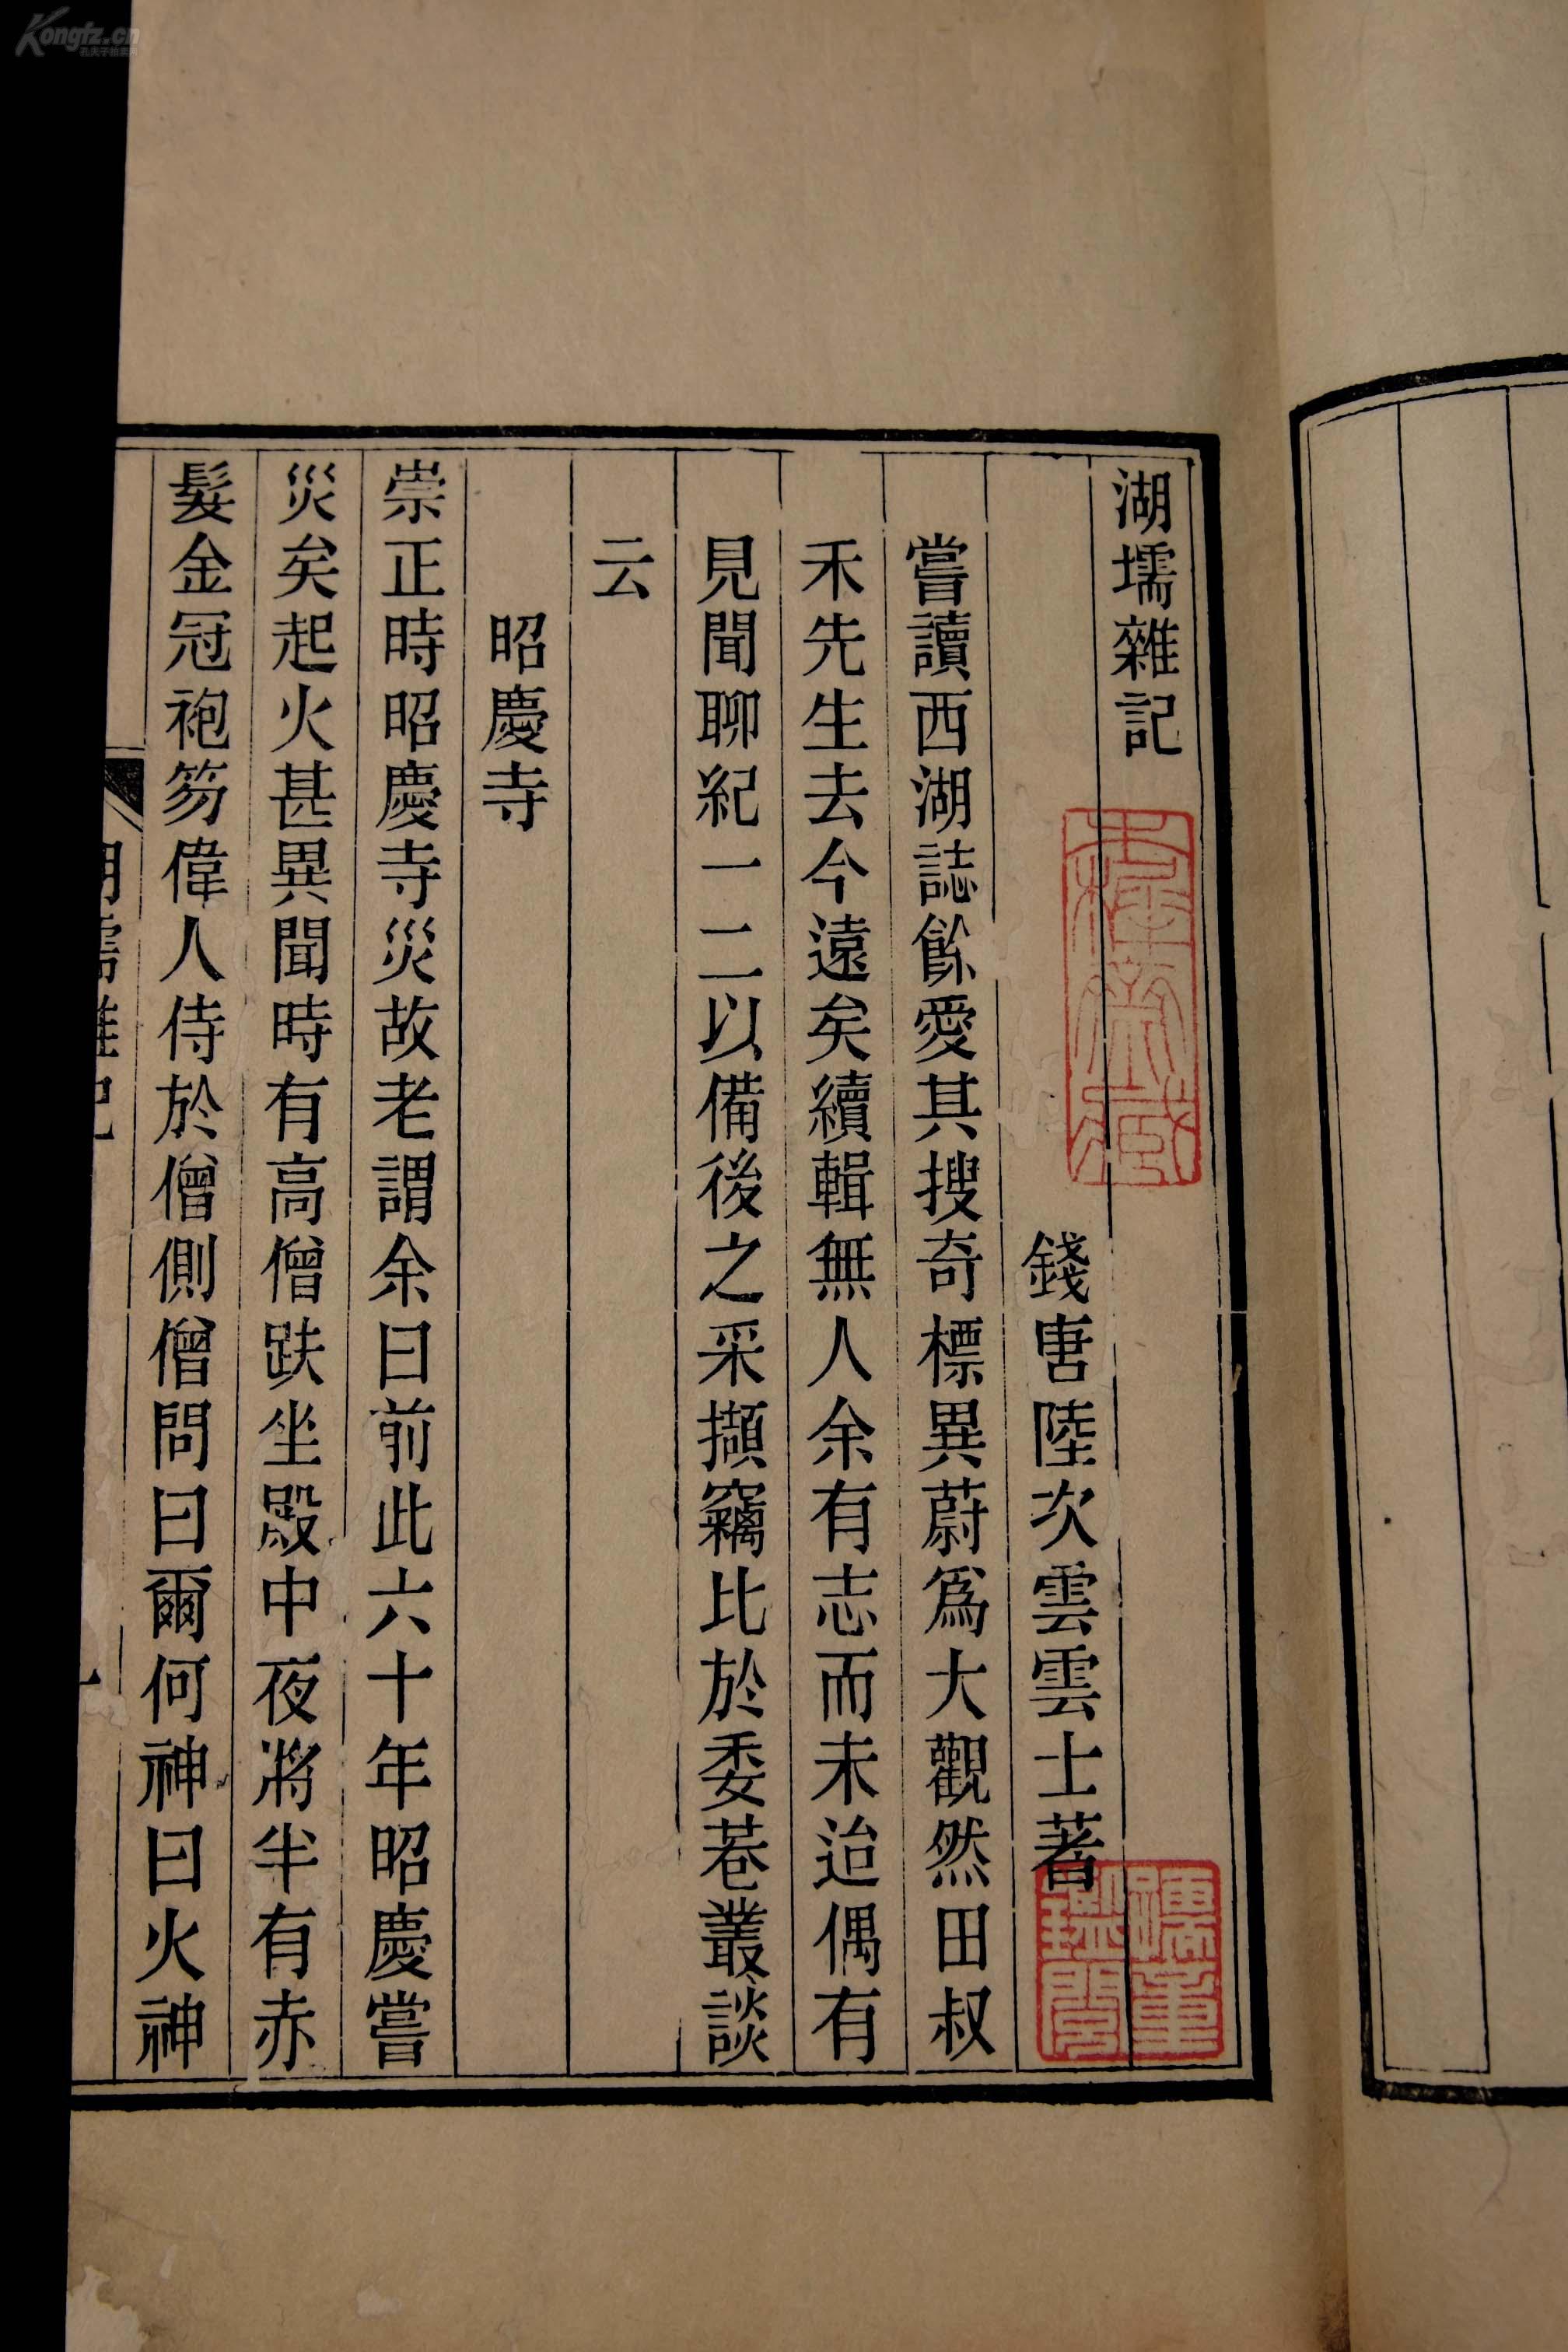 湖壖雜記
錢唐陸次雲雲士著
嘗讀西湖誌餘愛其搜奇標異蔚爲大觀然田叔
禾先生去今遠矣續輯無人余有志而未迨偶有
見聞聊紀一二以備後之采擷竊比於委巷叢談
云
昭慶寺
崇正時昭慶寺災故老謂余曰前此六十年昭慶嘗
災矣起火甚異聞時有高僧趺坐殿中夜將半有赤
髮金冠袍笏偉人侍於僧側僧問曰爾何神曰火神
湖壖雜記
一
Kongfz.cn